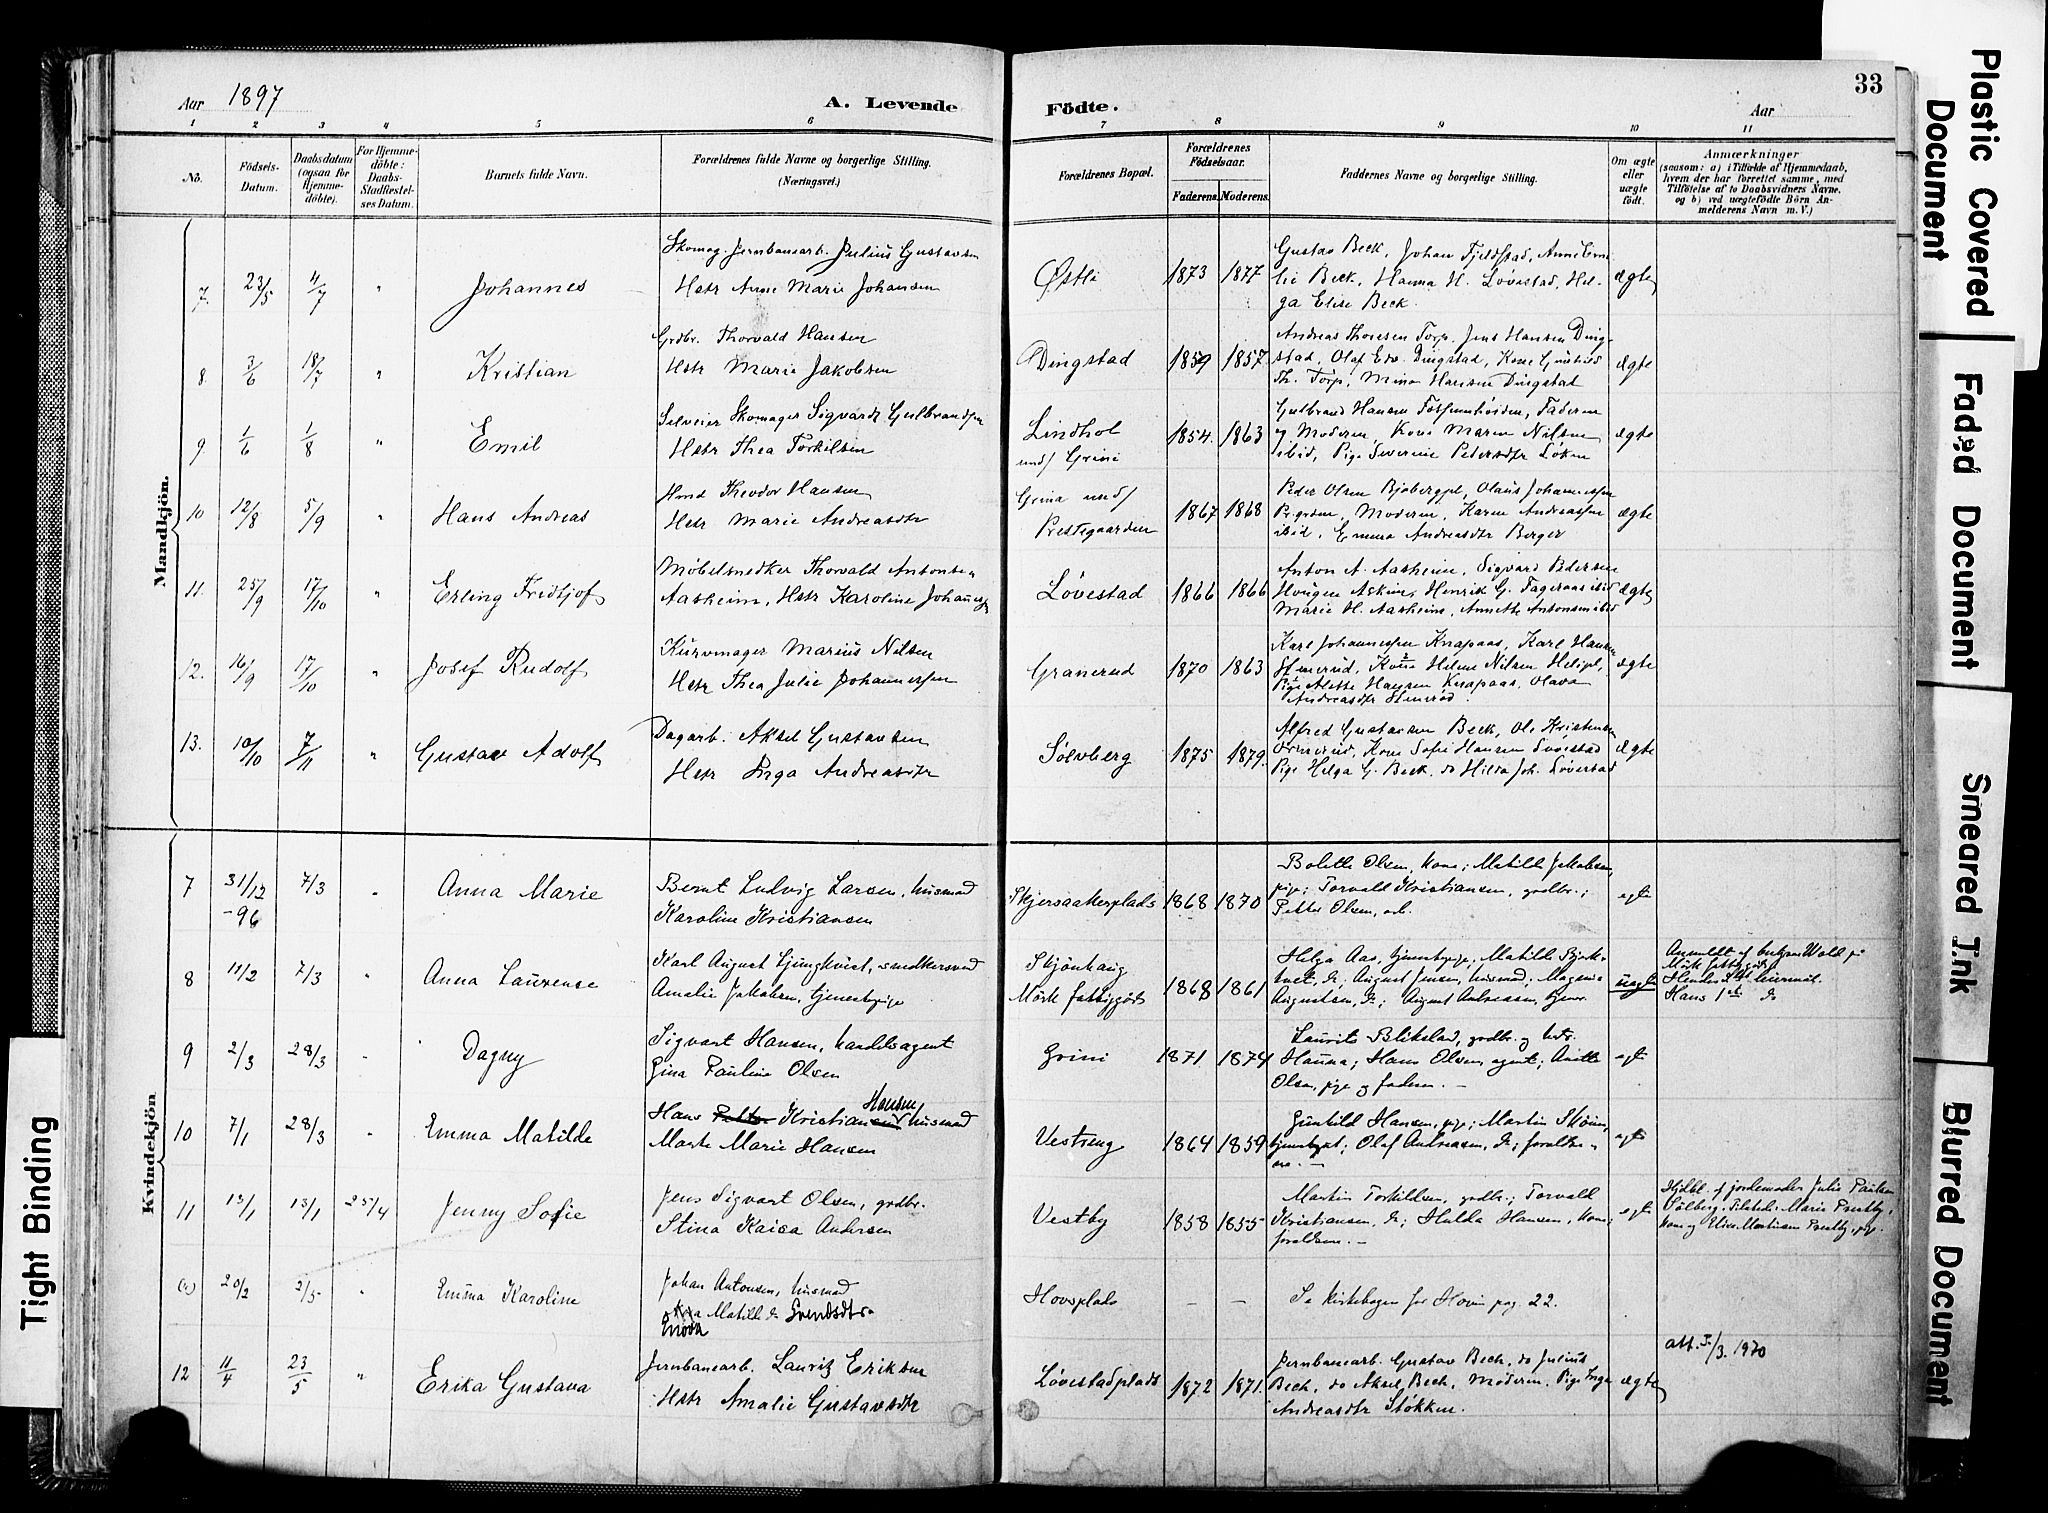 Aar 1897
A. Levende Födte.
Aar
33
1 2 3 4 5 6 7 8 9 10 11
No.
Födsels-Datum.
Daabsdatum (ogsaa for Hjemmedöbte).
For Hjemmedöbte: Daabs-Stadfæstelses Datum.
Barnets fulde Navn.
Forældrenes fulde Navne og borgerlige Stilling. (Næringsvei.)
Forældrenes Bopæl.
Forældrenes Födselsaar.
Faderens. Moderens.
Faddernes Navne og borgerlige Stilling.
Om ægte eller uægte födt.
Anmærkninger
(saasom: a) i Tilfælde af Hjemmedaab,
hvem der har forrettet samme, med
Tilföielse af to Daabsvidners Navne.
og b) ved uægtefödte Börn An-
melderens Navn m. V.)
Mandkjön.
7. 23/5 4/7 " Johannes
Skomag. Jernbanearb. Julius Gustavsen
Hstr Anne Marie Johansen
Østli 1873 1877
Gustav Beck, Johan Fjeldstad, Anne Emi
lie Beck, Hanna H. Lövestad, Hel-
ga Elise Beck.
ægte
8. 3/6 18/7 " Kristian
Grdbr. Thorvald Hansen
Hstr Marie Jakobsen
Dingstad 1859 1857
Andreas Thoresen Torp, Jens Hansen Ding-
stad, Olaf Edv. Dingstad, Kone Gunhild
Th. Torp, Mina Hansen Dingstad
ægte
9. 1/6 1/8 " Emil
Selveier Skomager Sigvardt Gulbrandsen
Hstr Thea Torkilsen
Lindhol
und/ Grini
1854. 1863
Gulbrand Hansen Fossumhöiden, Faderen
og Moderen, Kone Maren Nilsen
ibid, Pige Severine Pedersdtr Löken
ægte
10 12/8 5/9 " Hans Andreas
Hmd Theodor Hansen
Hstr Marie Andreasdtr
Grina und/
Prestegaarden
1867 1868
Peder Olsen Bjobergpl, Olaus Johannessen
Pr.grden, Moderen, Karen Andreassen
ibid, Emma Andreasdtr Berger
ægte
11. 25/9 17/10 " Erling Fridtjof
Möbelsnedker Thorvald Antonsen
Aasheim, Hstr Karoline Johannesen
Lövestad 1866 1866
Anton A. Aasheim, Sigvard Pedersen
Hougen Askim, Henrik G. Fageraas ibid
Marie H. Aasheim, Annette Antonsen ibid
ægte
12. 16/9 17/10 " Josef Rudolf
Kurvmager Marius Nilsen
Hstr Thea Julie Johannessen
Granerud 1870 1863
Karl Johannessen Knapaas, Karl Hansen
Stenerud, Kone Helene Nilsen Helipl,
Pige Alette Hansen Knapaas, Olava
Andreasdtr Stenerød.
ægte
13. 10/10 7/11 " Gustav Adolf
Dagarb. Aksel Gustavsen
Hstr Inga Andreasdtr
Solvberg 1875 1879.
Alfred Gustavsen Beck, Ole Kristensen
Ormerud, Kone Sofie Hansen Lövestad
Pige Helga G. Beck, do Hilda Joh. Lövestad
ægte
Kvindekjön
7 31/12 -96 7/3 " Anna Marie
Bernt Ludvig Larsen, husmand
Karoline Kristiansen
Skjersaakerplads 1868 1870
Bolette Olsen, kone; Matilde Jakobsen,
pige; Torvald Kristiansen, grdbr.;
Petter Olsen, arb.
egte
8 11/2 7/3 " Anna Laurense
Karl August Ljungkvist, smedkersvend
Amalie Jakobsen, tjenestepige
Skjönhaug
Mörk fattiggods
1868 1861
Helga Aas, tjenestepige, Matilde Björk-
tvet, do; August Jensen, husmand; Magnus
Augustsen, do; August Andreasen, tjener
uegte
Anmeldt af bestyrer Wold på
Mörk fattiggods
Hendes 2det leiermål.
Hans 1ste do
9 2/3 28/3 " Dagny
Sigvart Hansen, handelsagent
Gina Pauline Olsen
Grini 1871 1874
Laurits Blikstad, grdbr. og hstr.
Hanna; Hans Olsen, agent; Anette
Olsen, pige og faderen. -
egte
10 7/1 28/3 " Emma Matilde
Hans Petter Kristiansen Hansen husmand
Marte Marie Hansen
Vestreng 1864 1859
Gunhild Hansen, pige; Martin Skóien,
tjenestegut; Olaf Andreasen, do; foreldre-
ne. -
egte
11 13/1 13/1 25/4 Jenny Sofie
Jens Sigvart Olsen, grdbr.
Stina Kaisa Andersen
Vestby 1858 1855
Martin Torkillsen, grdbr.; Torvald
Kristiansen, do; Hulda Hansen, kone;
foreldrene. -
egte
Hjdbt. af jordemoder Julie Paulsen
Sölberg. Tilstede: Marie Prestby,
kone og Elise Martinsen Prestby, pige.
20/2 2/5 " Emma Karoline
Johan Antonsen, husmand
Matilde Svendsdtr
Hovsplads - -
Se kirkebogen for Hovin pag. 22.
12 11/4 23/5 " Erika Gustava
Jernbanearb. Lauritz Eriksen
Hstr Amalie Gustavsdtr
Lövestadplads 1872 1871.
Jernbanearb. Gustav Beck, do Julius
Beck, do Aksel Beck, Moderen. Pige Inga
Andreasdtr Stökken.
ægte
att. 5/3. 1970
Plastic Covered Document
Faded Document
Smeared Ink
Blurred Document
Tight Binding